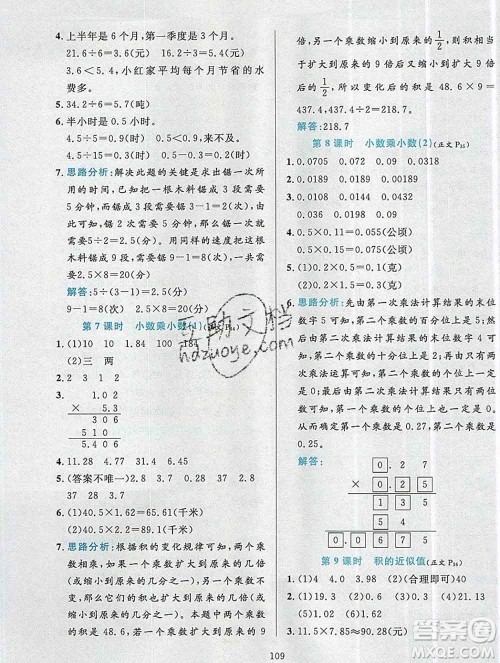 4. 上半年是6个月,第一季度是3个月。
21.6÷6=3.6(元)  16.2÷3=5.4(元)
3.6<5.4  小红家平均每个月节省的水
费多。
5. 22.8÷4=5.7(吨)
6. 半小时是0.5小时。
4.5÷5=0.9  0.9>0.5  来不及。
4.5÷0.5=9  4.5÷0.15=30
7. 思路分析:解决此题的关键是求锯一次所
用的时间,已知把一根木料锯成3段需要
5分钟,而锯成3段需要锯3-1=2(次),
由此可以求出锯一次需要5÷2=2.5(分
钟),因此,用同样的速度把一根同样的木
料锯成9段,需要锯9-1=8(次),需要
2.5×8=20(分钟)。
解答:5÷(3-1)=2.5(分钟)
2.5×(9-1)=20(分钟)
第7课时 小数乘小数(1)
1. (1)10 10 1.84 100 184
(2)三 两
2. 2 3 1 2
3. 1.02
× 5.3
306
510
5.406
4. 11.28 4.71 28.8
5. (答案不唯一)2.3 2.8 3.7 0.28
34 0.82
6. (1)40.5×1.62=65.61(千米)
(2)40.5×2.2=89.1(千米)
7. 思路分析:根据积的变化规律可知,两个乘
数相乘,如果一个乘数扩大到原来的几倍
(或缩小到原来的几分之一),另一个乘数
不变,那么积就扩大到原来的几倍(或缩小
到原来的几分之一)。本题中两个乘数的
积是48.6,若一个乘数扩大到原来的9
倍,另一个乘数缩小到原来的1/2,则积相
当于先扩大到原来的9倍后又缩小到扩大
9倍后的1/2,因此这时的积应是48.6×9=
437.4,437.4÷2=218.7。
解答:218.7
第8课时 小数乘小数(2)(正文P35)
1. 0.0705 0.0209 0.0318
2. 0.072 0.049 0.0198 0.0290
3. 0.11×0.5=0.055(公顷)
0.055×4=0.22(公顷)
4. 0.02×0.15=0.003(克)
5. (1)0.2×0.15=0.03(克)
(2)0.4×0.15=0.06(克)
6. 思路分析:先由第一次乘法计算结果的末位
数字5可知,第二个乘数的百分位上是5;
然后由第二次乘法计算结果的末位数字4
可知,第二个乘数的十分位上是2;再由只有
两次乘法计算的结果可知,第二个乘数的个
位上是0;最后由第二次乘法计算结果可知,
第一个乘数的个位上也是0,所以第二个乘数是
0.25。
解答:
0.27
×0.25
135
54
0.0675
第9课时 积的近似值(正文P36)
1. (1)4 4.0 3.98 (2)(合理即可)40
2. (1)10.2 (2)0.43
3. 11.5×7.85≈90.28(元)
109
互助文档
hdzuoye.com
作业帮
MXQE.COM